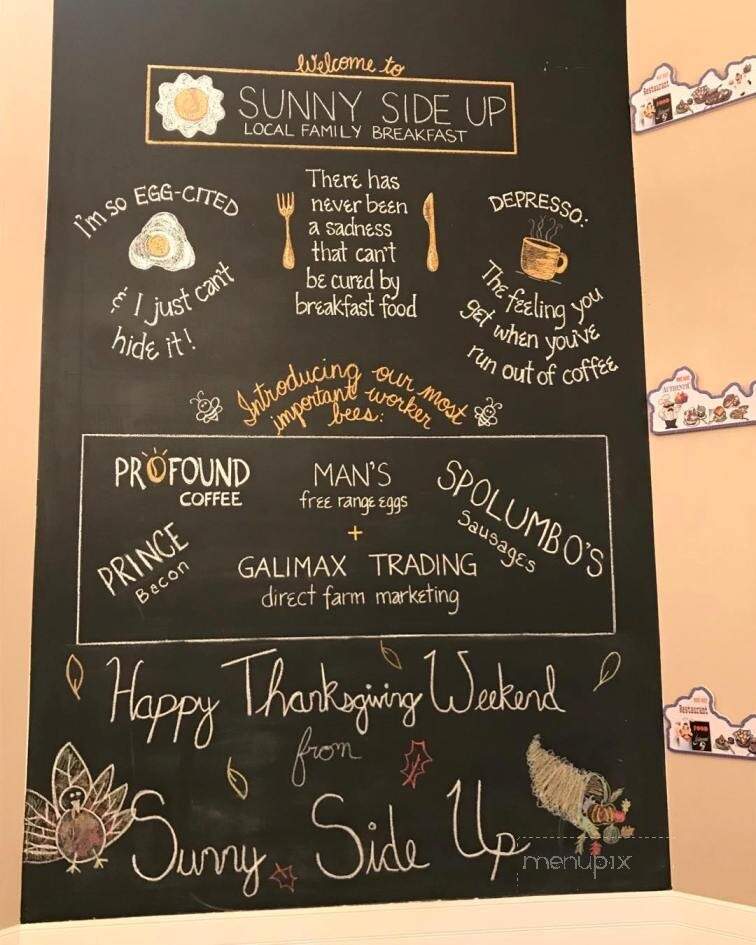 Welcome to
SUNNY SIDE UP
LOCAL FAMILY BREAKFAST
I'm SO EGG-CITED
& I just can't
hide it!
There has
never been
a sadness
that can't
be cured by
breakfast food
DEPRESSO:
The feeling you
get when you've
run out of coffee
Introducing our most
important worker
bees:
PROFOUND
COFFEE
MAN'S
free range eggs
SPOLUMBO'S
Sausages
PRINCE
Bacon
+
GALIMAX TRADING
direct farm marketing
Happy Thanksgiving Weekend
from
Sunny Side Up
Restaurant
AUTHENTIC
Restaurant
FOOD
menupix